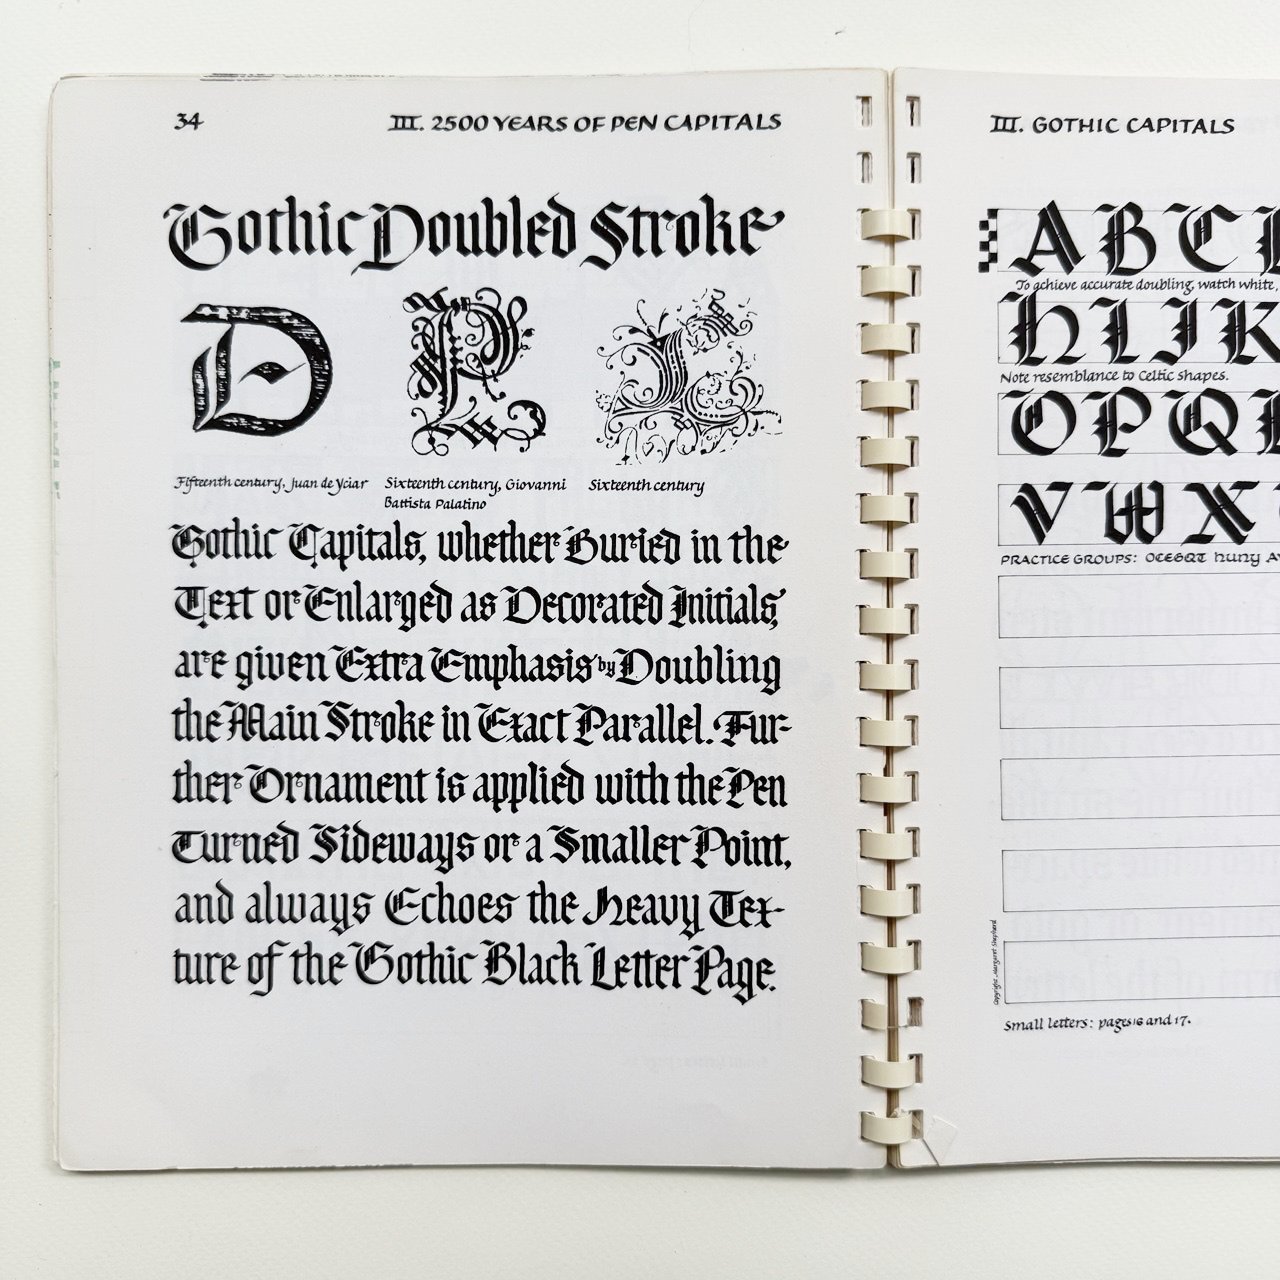 34
III. 2500 YEARS OF PEN CAPITALS
Gothic Doubled Stroke
Fifteenth century, Juan de Yciar
Sixteenth century, Giovanni
Battista Palatino
Sixteenth century
Gothic Capitals, whether Buried in the
Text or Enlarged as Decorated Initials,
are given Extra Emphasis by Doubling
the Main Stroke in Exact Parallel. Fur-
ther Ornament is applied with the Pen
Turned Sideways or a Smaller Point,
and always Echoes the Heavy Tex-
ture of the Gothic Black Letter Page.
III. GOTHIC CAPITALS
A B C
To achieve accurate doubling, watch white,
H I J K
Note resemblance to Celtic shapes.
O P Q
V W X
PRACTICE GROUPS: OCEGQT huny
Copyright Margaret Shepherd
Small letters: pages 16 and 17.